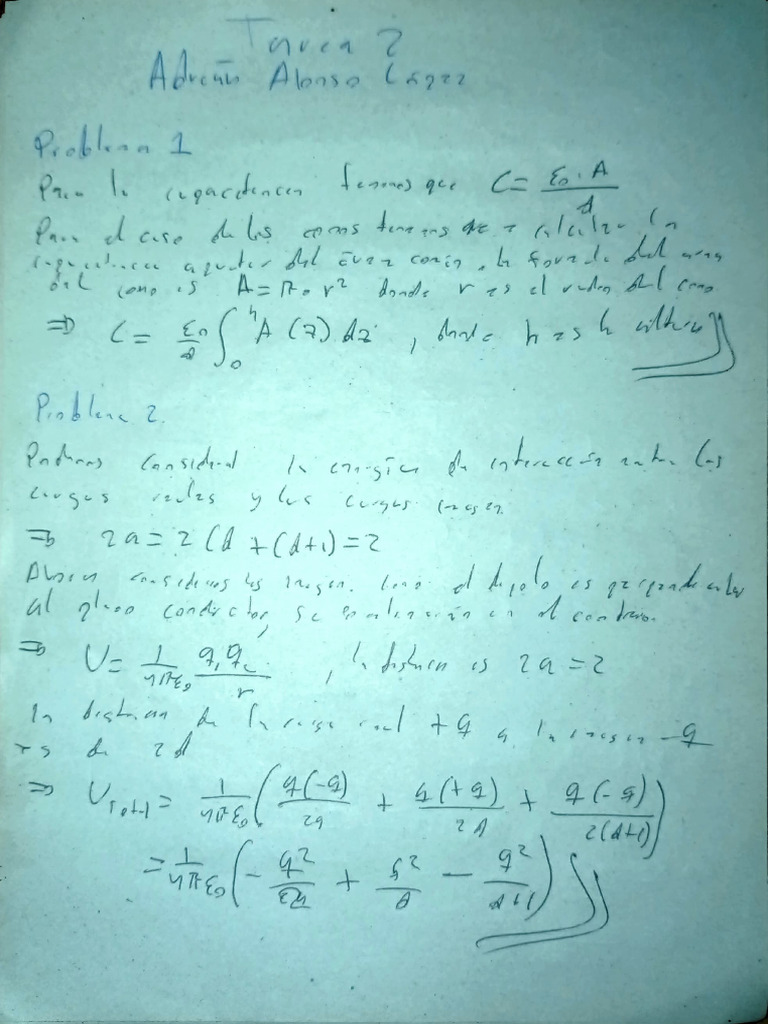 Tarea 2
Adrián Alonso López
Problema 1
Para la capacitancia tenemos que C = ε₀·A / d
Para el caso de los conos tenemos que calcular la
capacitancia a partir del área del cono
del cono es A = π·r² donde r es el radio del cono
⇒ C = ε₀/d ∫₀ʰ A(z) dz, donde h es la altura
Problema 2.
Podemos considerar la energía de interacción entre las
cargas reales y las cargas imagen
⇒ 2a = 2 (d + (d+1) = 2
Ahora consideremos las imagen. como el dipolo es perpendicular
al plano conductor, se
⇒ U = 1/4πε₀ q₁q₂/r, la distancia es 2a = 2
la distancia de la carga real +q a la imagen −q
es de 2d
⇒ U_Total = 1/4πε₀ ( q(−q)/2a + q(+q)/2d + q(−q)/2(d+1) )
= 1/4πε₀ ( − q² + q²/d − q²/d+1 )